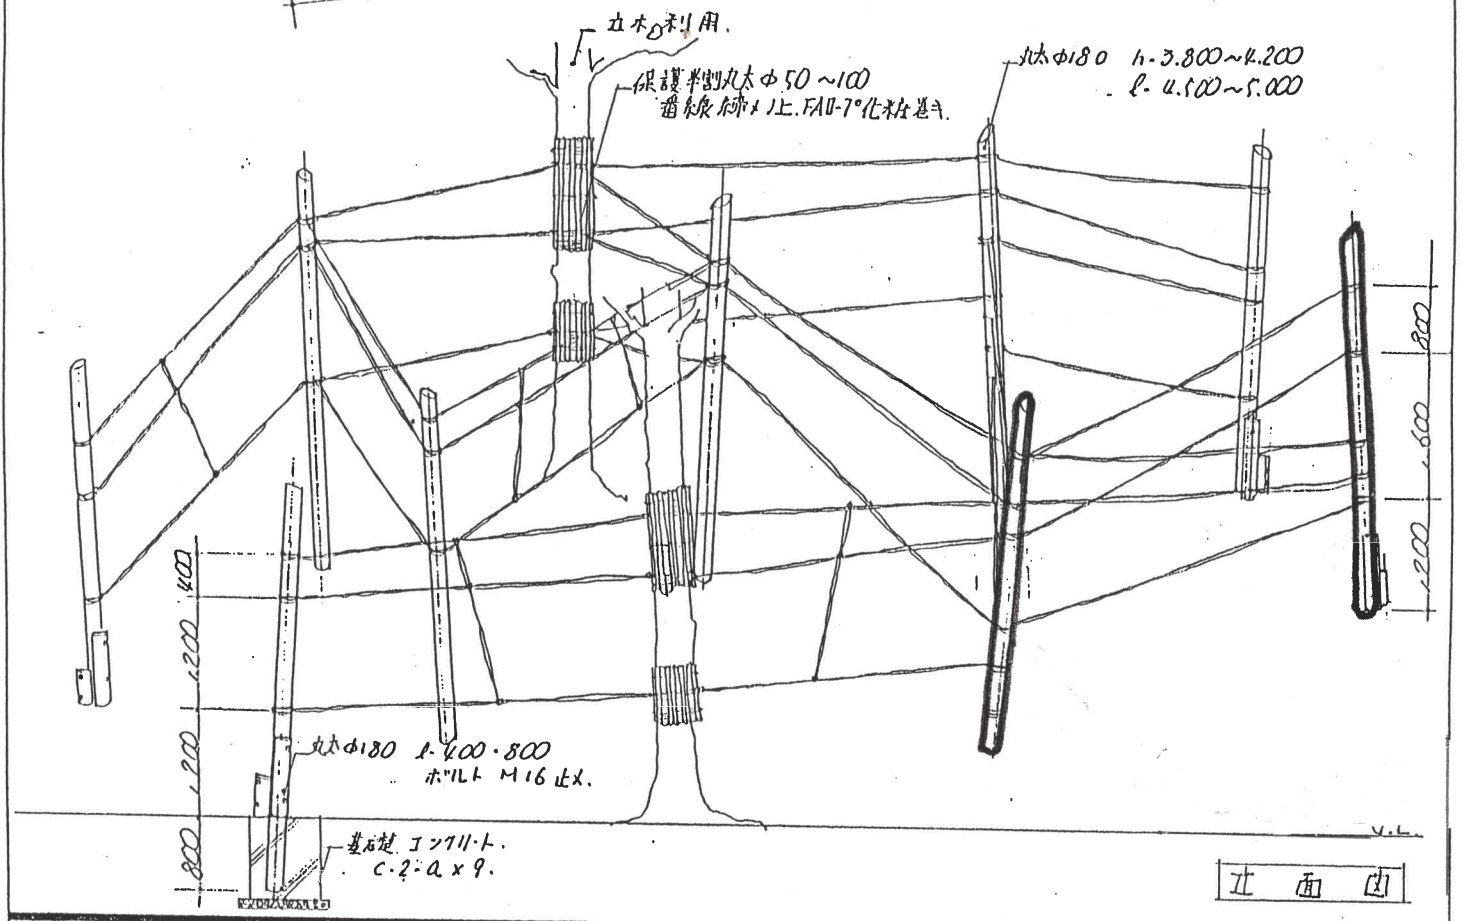 立木の利用.
保護半割丸太 φ50～100
番線締メノ上. FAロープ化粧巻き.
丸太φ180 h=3.800～4.200
l=4.500～5.000
800
1,600
1,200
400
1,200
1,200
800
丸太φ180 l=400・800
ボルト M16 止メ.
基礎 コンクリート.
C.2:a×9.
立面図